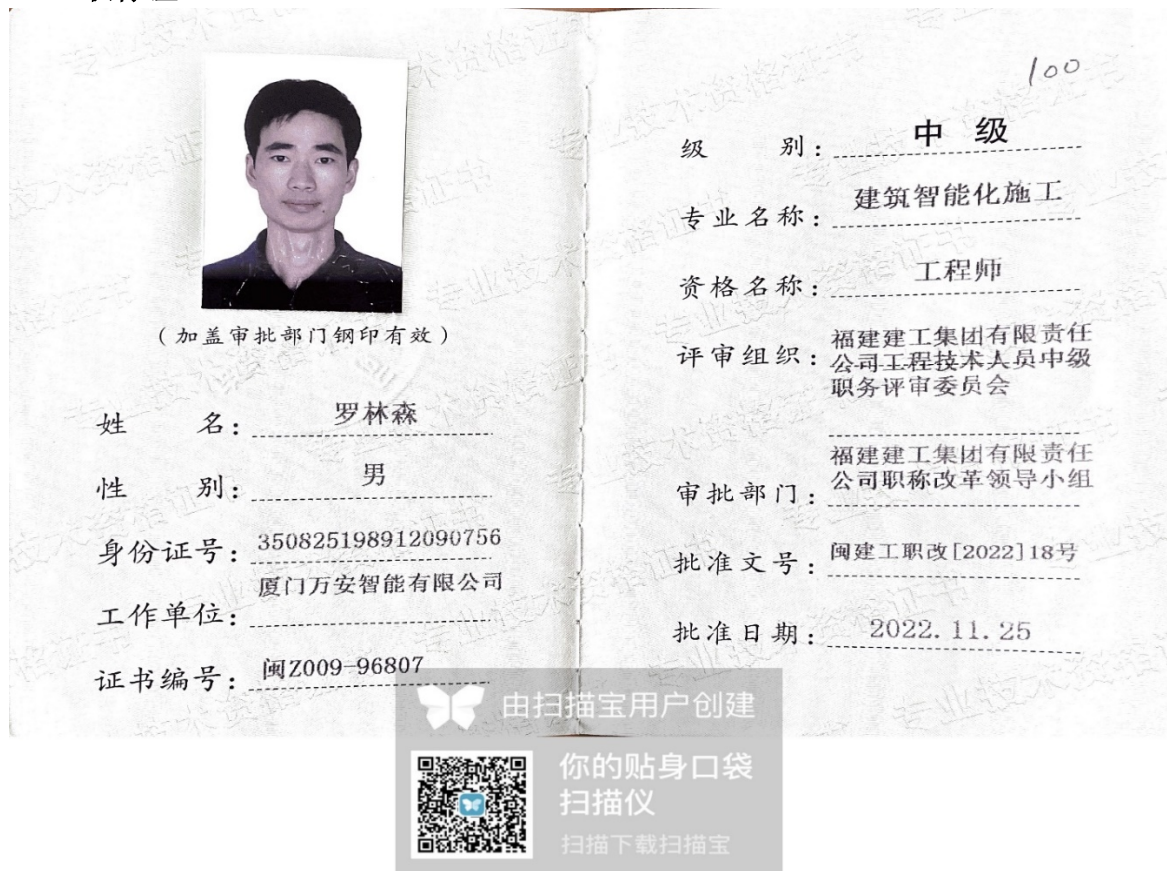 (加盖审批部门钢印有效)
姓 名: 罗林森
性 别: 男
身份证号: 350825198912090756
工作单位: 厦门万安智能有限公司
证书编号: 闽Z009-96807
100
级 别: 中 级
专业名称: 建筑智能化施工
资格名称: 工程师
评审组织: 福建建工集团有限责任
公司工程技术人员中级
职务评审委员会
审批部门: 福建建工集团有限责任
公司职称改革领导小组
批准文号: 闽建工职改[2022]18号
批准日期: 2022.11.25
由扫描宝用户创建
你的贴身口袋
扫描仪
扫描下载扫描宝